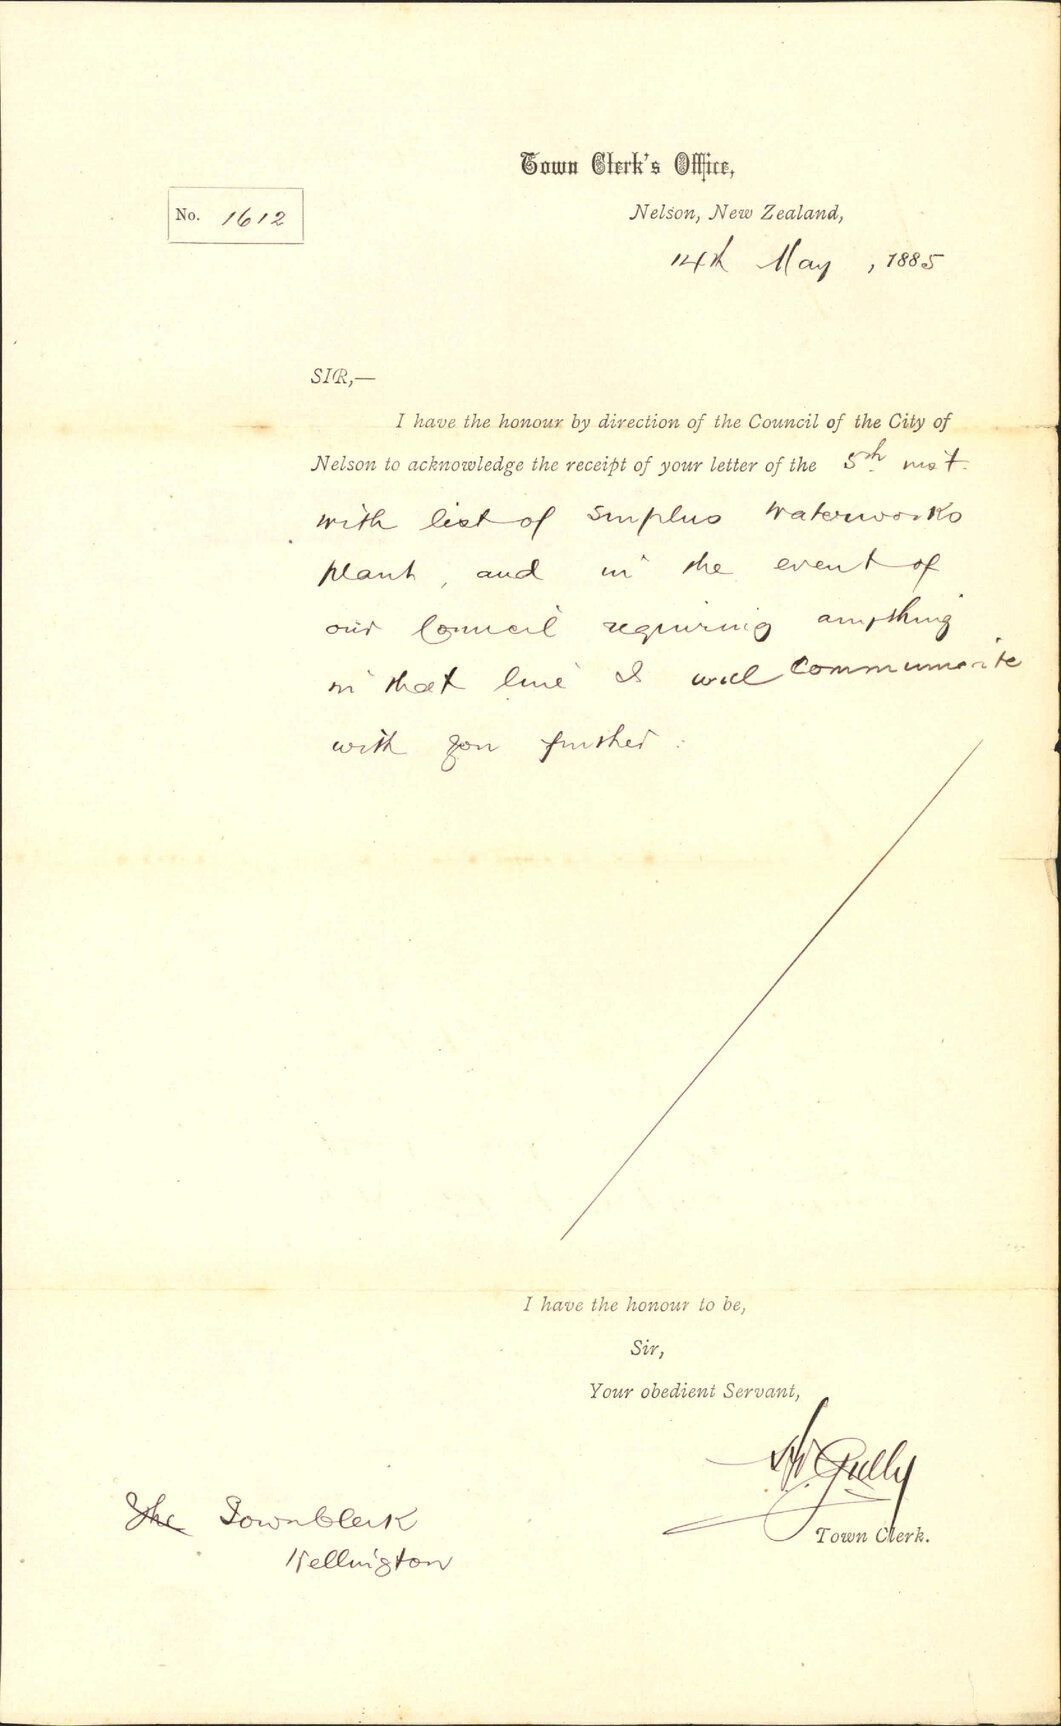 Town Clerk's Office,
No. 1612
Nelson, New Zealand,
14th May, 1885
SIR,—
I have the honour by direction of the Council of the City of
Nelson to acknowledge the receipt of your letter of the 5th inst.
with list of surplus Waterworks
plant, and in the event of
our Council requiring anything
in that line I will communicate
with you further.
I have the honour to be,
Sir,
Your obedient Servant,
Gully
Town Clerk.
The Town Clerk
Wellington